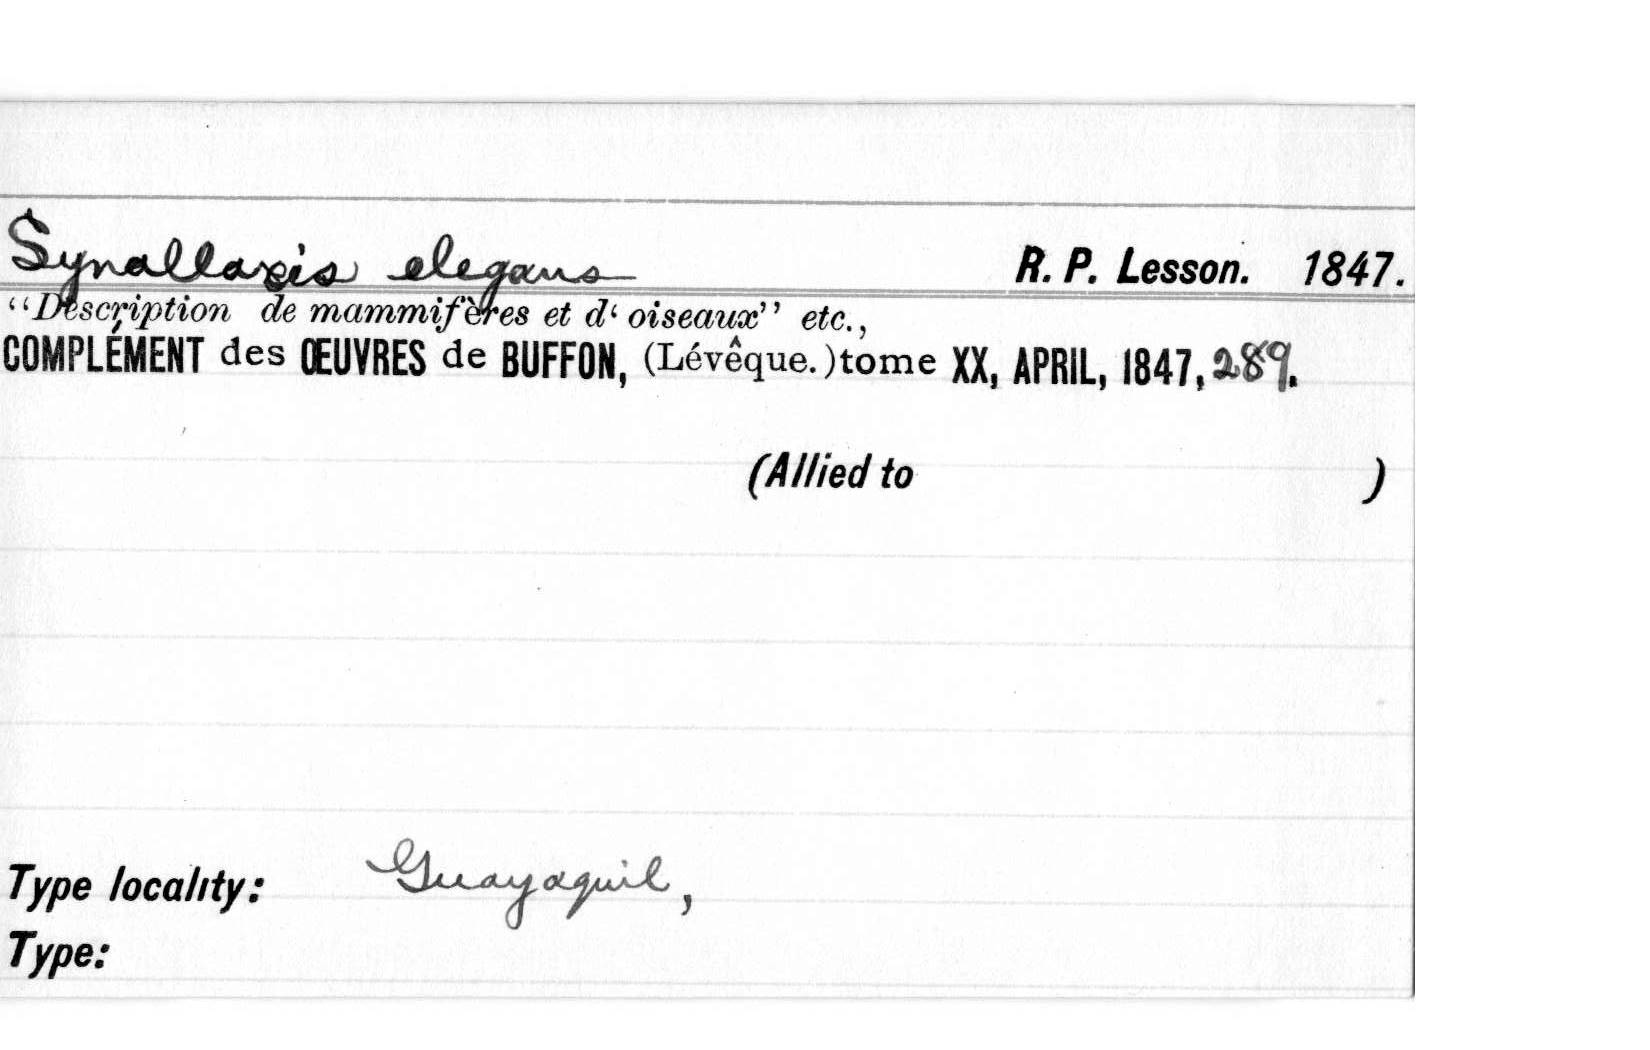 Synallaxis elegans R. P. Lesson. 1847.
“Description de mammifères et d‘ oiseaux” etc.,
COMPLÉMENT des ŒUVRES de BUFFON, (Lévêque.)tome XX, APRIL, 1847, 289.
(Allied to )
Type locality: Guayaquil,
Type: